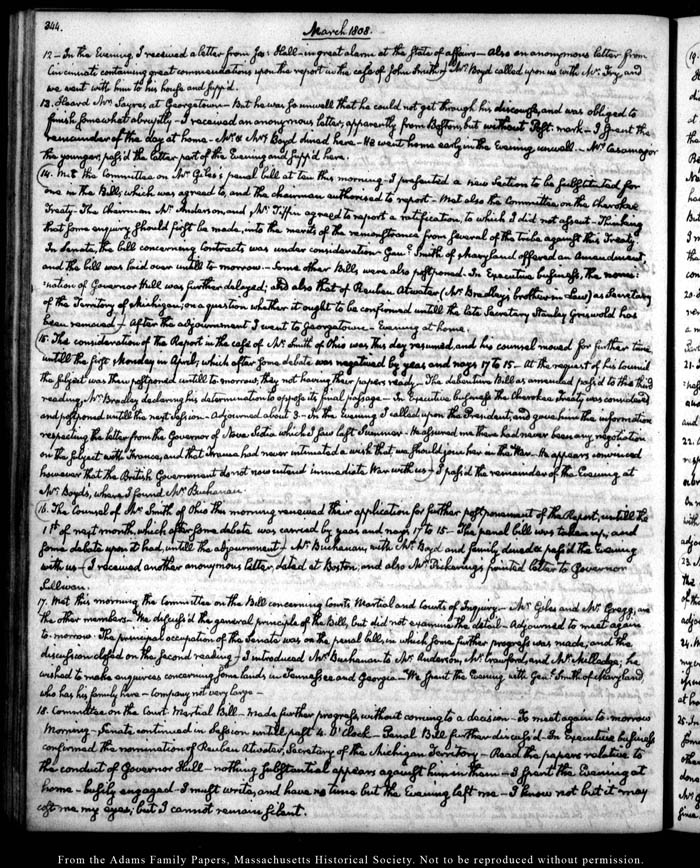 344.
March 1808.
12 — In the Evening, I received a letter from Ja: Hall — in great alarm at the State of affairs — Also an anonymous letter from
Cincinnati containing great commendations upon the report in the case of John Smith — Mr. Boyd called upon us with Mr. Ivy, and
we went with him to his house and supp'd.
13. Heard Mr. Sayres at Georgetown — But he was so unwell that he could not get through his discourse, and was obliged to
finish somewhat abruptly — I received an anonymous letter, apparently from Boston, but without Post-mark — I spent the
remainder of the day at home — Mr. & Mrs. Boyd dined here — He went home early in the Evening, unwell — Mr. Casamajor
the younger, pass'd the latter part of the Evening and supp'd here.
14. Met the Committee on Mr. Giles's penal bill at ten this morning — I presented a new Section to be substituted for
one in the Bill, which was agreed to, and the chairman authorised to report — Met also the Committee on the Cherokee
Treaty — The Chairman Mr. Anderson, and Mr. Tiffin agreed to report a ratification, to which I did not assent — Thinking
that some enquiry should first be made, into the merits of the remonstrance from several of the tribe against this Treaty
In Senate, the bill concerning Contracts was under consideration — Genl. Smith of Maryland offered an Amendment,
and the bill was laid over untill to morrow — Some other Bills, were also postponed — In Executive business, the nomi:
:nation of Governor Hull was further delayed; and also that of Reuben Atwater (Mr. Bradley's brother in Law) as Secretary
of the Territory of Michigan; on a question whether it ought to be confirmed untill the late Secretary Stanley Griswold has
been removed — After the adjournment I went to Georgetown — Evening at home.
15. The consideration of the Report in the case of Mr. Smith of Ohio was this day resumed, and his counsel moved for further time,
untill the first Monday in April; which after some debate was negatived by yeas and nays 17 to 15 — At the request of his Council
the subject was then postponed untill to morrow; they not having their papers ready — The debenture Bill as amended pass'd to this third
reading, Mr. Bradley declaring his determination to oppose its final passage — In Executive business the Cherokee Treaty was considered,
and postponed untill the next session — Adjourned about 3 — In the Evening I called upon the President, and gave him the information
respecting the letter from the Governor of Nova Scotia which I saw last Summer — He assured me there had never been any negotiation
on the subject with France, and that France had never intimated a wish that we should join her in the War — He appears convinced
however that the British Government do not now intend immediate War with us — I pass'd the remainder of the Evening at
Mr. Boyds, where I found Mr. Buchanan.
16. The Counsel of Mr. Smith of Ohio this morning renewed their application for further postponement of the Report, untill the
1st of next month, which after some debate was carried by yeas and nays 17 to 15 — The penal bill was taken up, and
some debate upon it had, untill the adjournment — Mr. Buchanan, with Mr. Boyd and family, dined & pass'd the Evening
with us — I received another anonymous letter, dated at Boston; and also Mr. Pickering's printed letter to Governor
Sullivan.
17. Met this morning the Committee on the Bill concerning Courts Martial and Courts of Enquiry — Mr. Giles and Mr. Gregg, are
the other members — We discuss'd the general principle of the Bill, but did not examine the detail — Adjourned to meet again
to-morrow — The principal occupation of the Senate was on the penal bill, in which some further progress was made, and the
discussion closed on the second reading — I introduced Mr. Buchanan to Mr. Anderson, Mr. Crawford, and Mr. Milledge; he
wished to make enquiries concerning some lands in Tennessee and Georgia — We spent the Evening with Genl. Smith of Maryland
who has his family here — Company not very large —
18. Committee on the Court Martial Bill — Made further progress, without coming to a decision — To meet again to-morrow
Morning — Senate continued in Session untill past 4. O'Clock — Penal Bill further discuss'd — In Executive business
confirmed the nomination of Reuben Atwater, Secretary of the Michigan Territory — Read the papers relative to
the conduct of Governor Hull — nothing substantial appears against him in them — I spent the Evening at
home — busily engaged — I must write, and have no time but the Evening left me — I know not but it may
cost me my eyes; but I cannot remain silent.
From the Adams Family Papers, Massachusetts Historical Society. Not to be reproduced without permission.